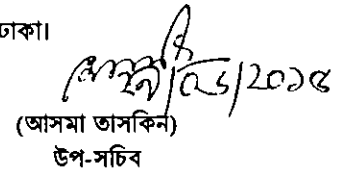 ঢাকা।
(আসমা তাসকিন)
উপ-সচিব